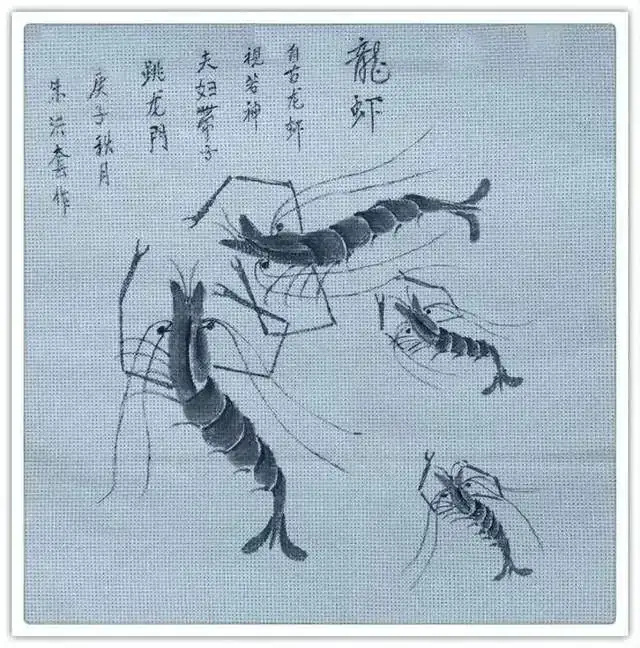 龍虾
自古龙虾
視若神
夫妇带子
跳龙門
庚子秋月
朱洪套作